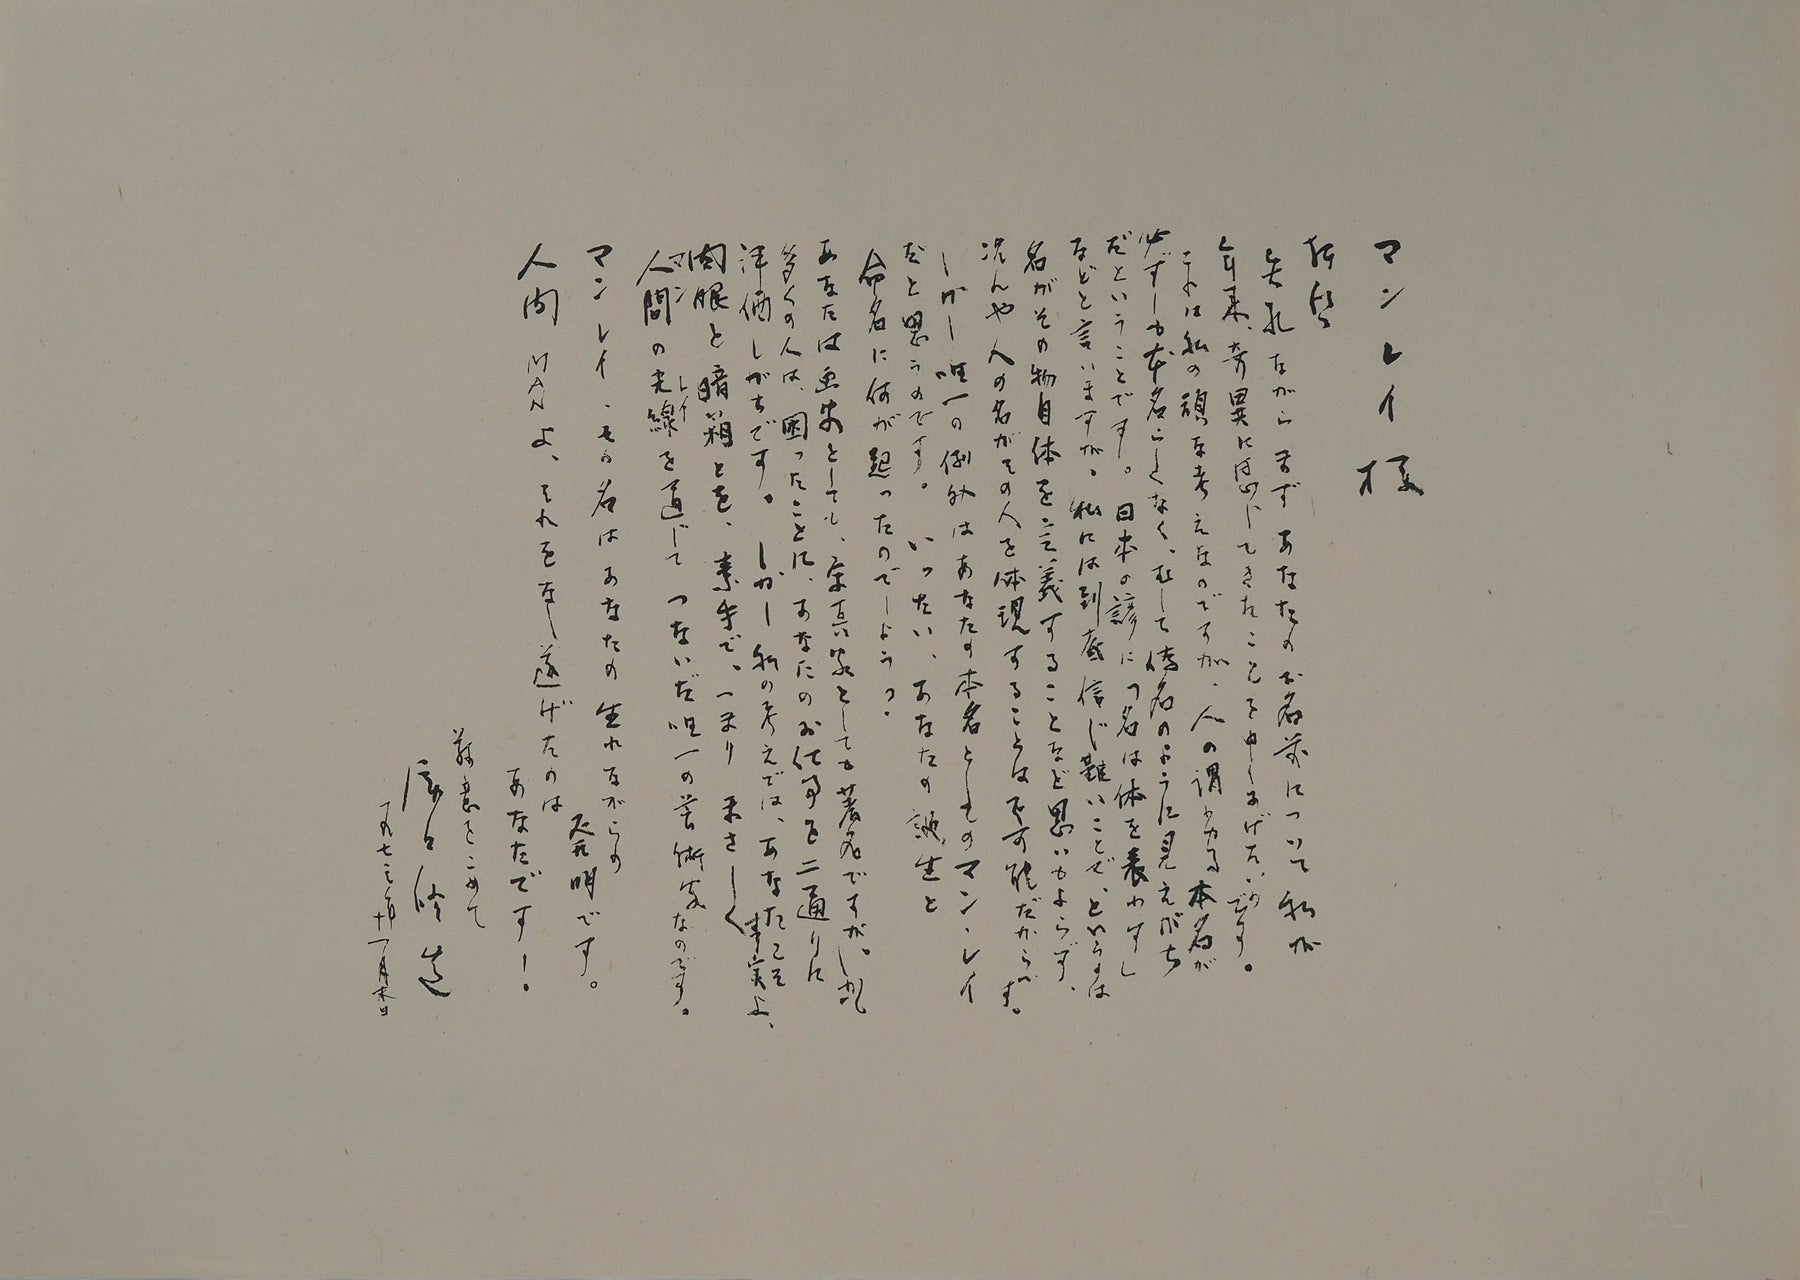 マン レイ 様
拝啓
失礼ながら まず あなたの お名前について 私が
年来、奇異に感じてきたことを申しあげたいのです。
これは私の頑な考えなのですが、人の謂わゆる本名が
必ずしも本名らしくなく、むしろ偽名のように見えがち
だということです。日本の諺に「名は体を表わす」
などと言いますが、私には到底信じ難いことで、というのは
名がその物自体を定義することなど思いもよらず、
況んや人の名がその人を体現することは不可能だからです。
しかし唯一の例外はあなたの本名としてのマン・レイ
だと思うのです。いったい、あなたの誕生と
命名に何が起ったのでしょう?
あなたは画家としても、写真家としても著名ですが、
多くの人は、困ったことに、あなたのお仕事を二通りに
評価しがちです。しかし私の考えでは、あなたこそ
肉眼と暗箱とを、素手で、つまり まさしく事実上、
マン レイ
人間の光線を通じて つないだ唯一の芸術家なのです。
マン レイ、その名はあなたの生れながらの
発明です。
人間 MANよ、それをなし遂げたのは
あなたです!
敬意をこめて
瀧口修造
一九七三年十一月末日